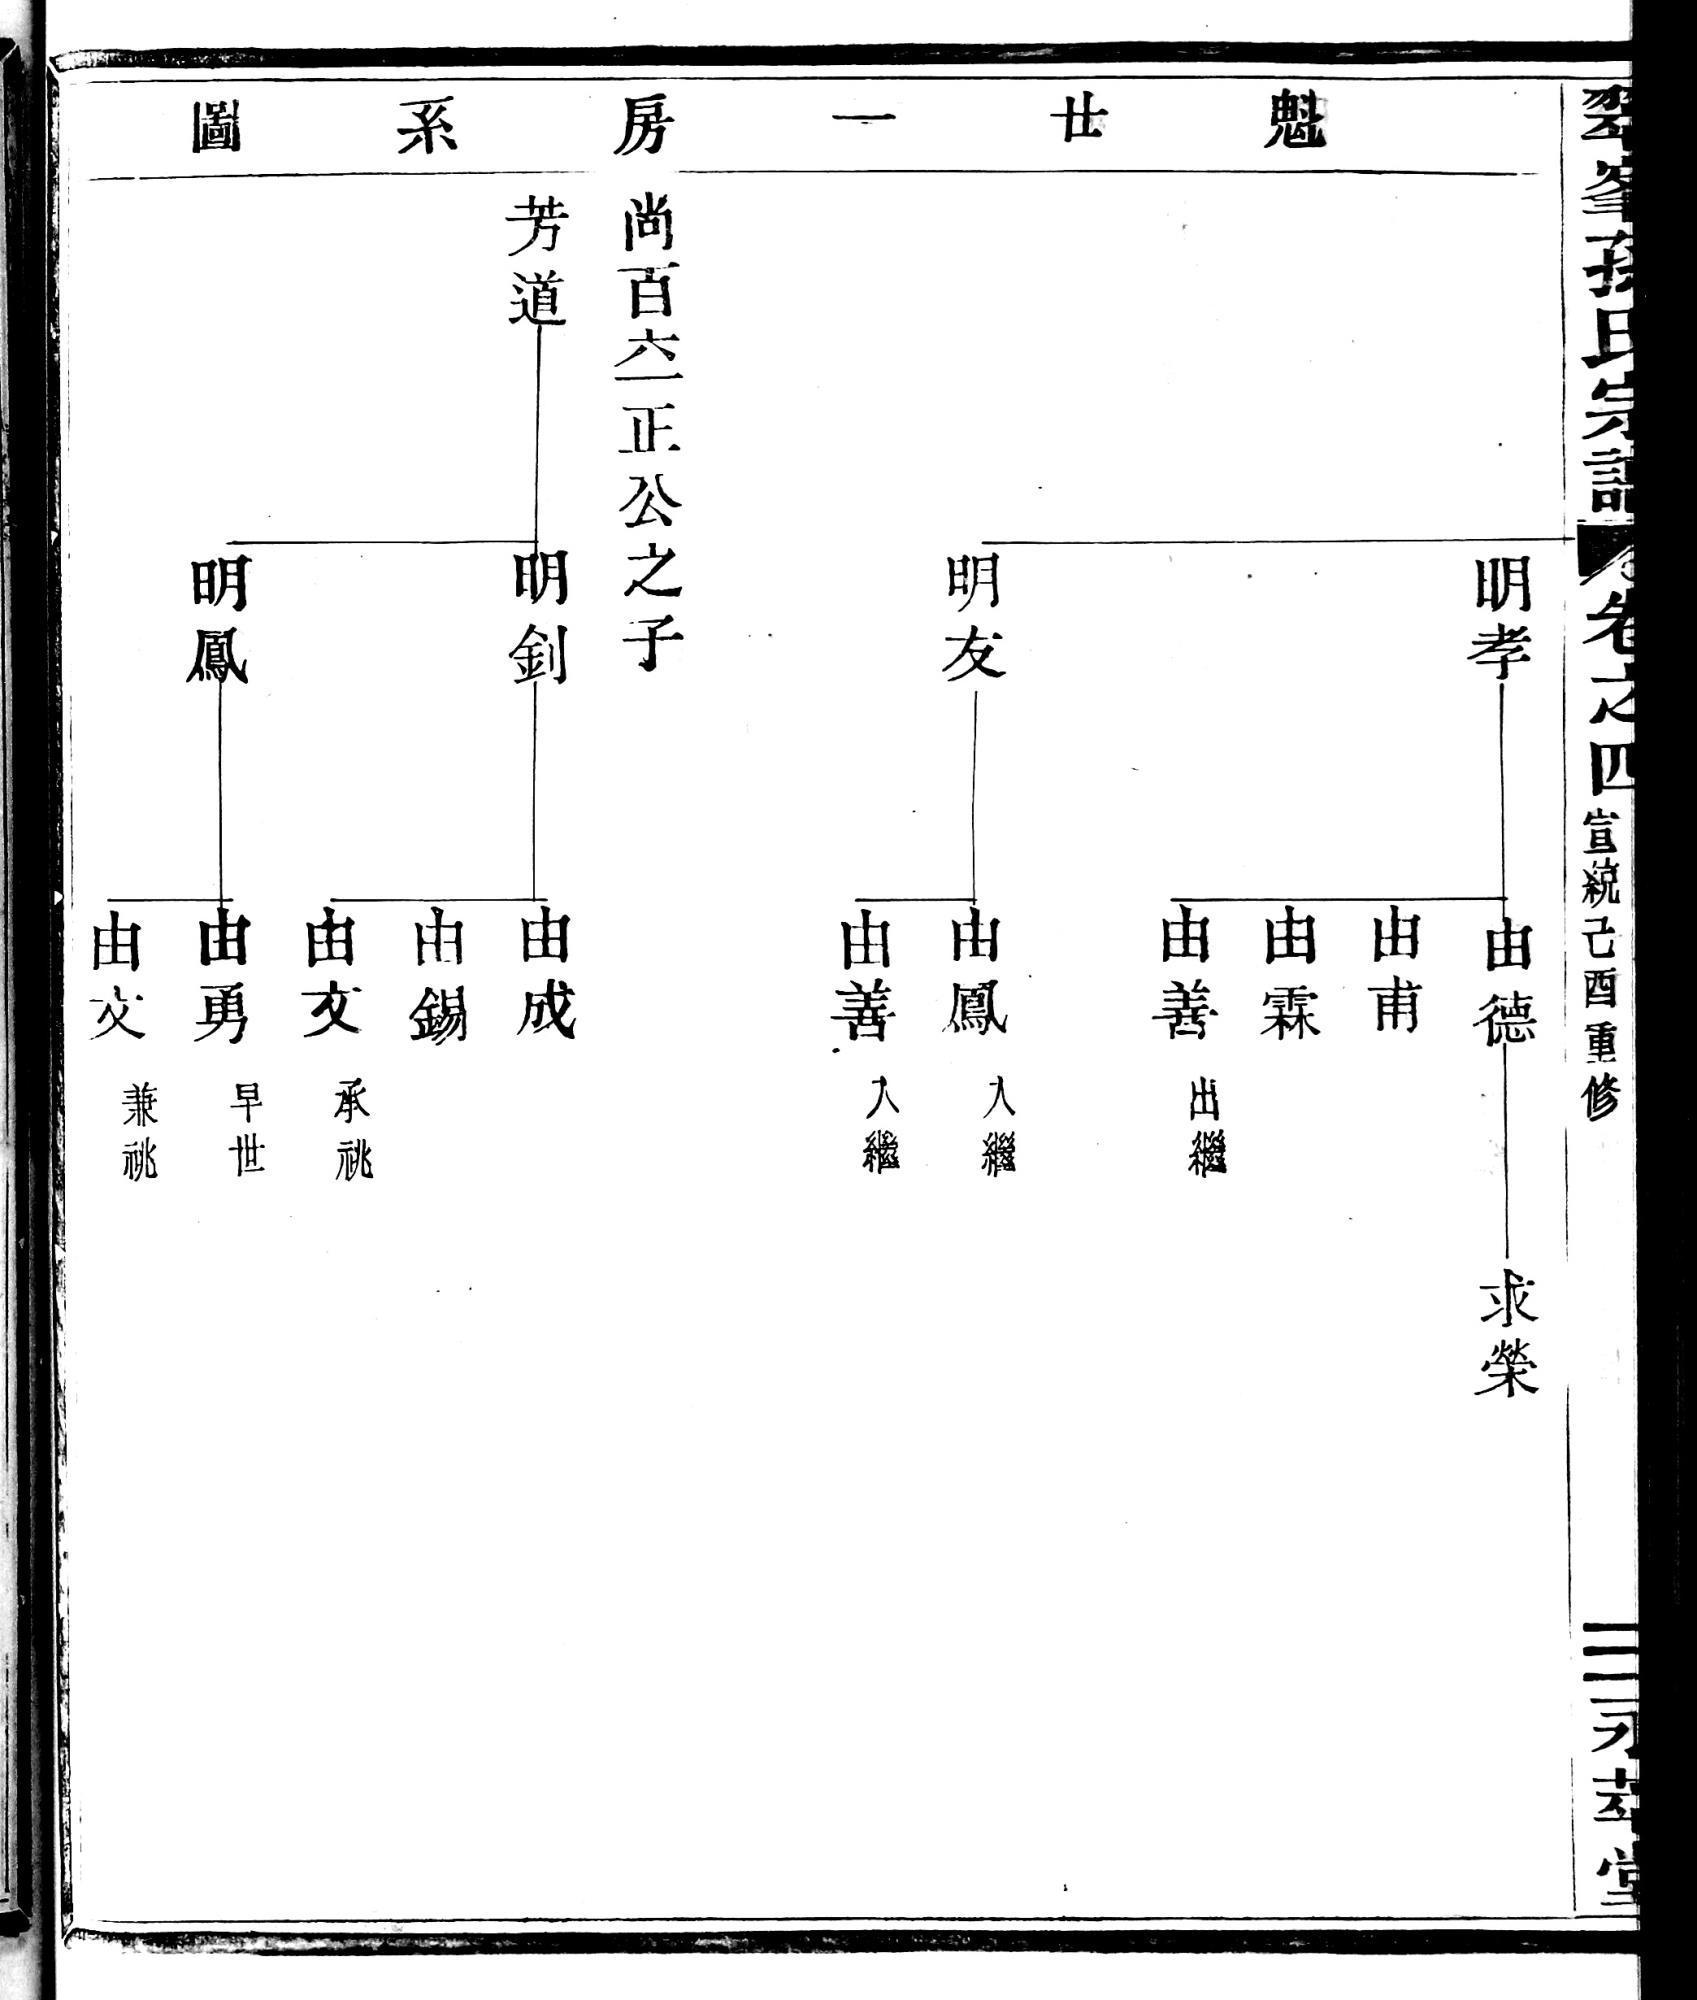 翠峯孫氏宗譜
卷之四
宣統己酉重修
永萃堂
魁廿一房系圖
明孝
由德
求榮
由甫
由霖
由善
出繼
明友
由鳳
入繼
由善
入繼
尚百六一正公之子
芳道
明釗
由成
由錫
由文
承祧
明鳳
由勇
早世
由文
兼祧